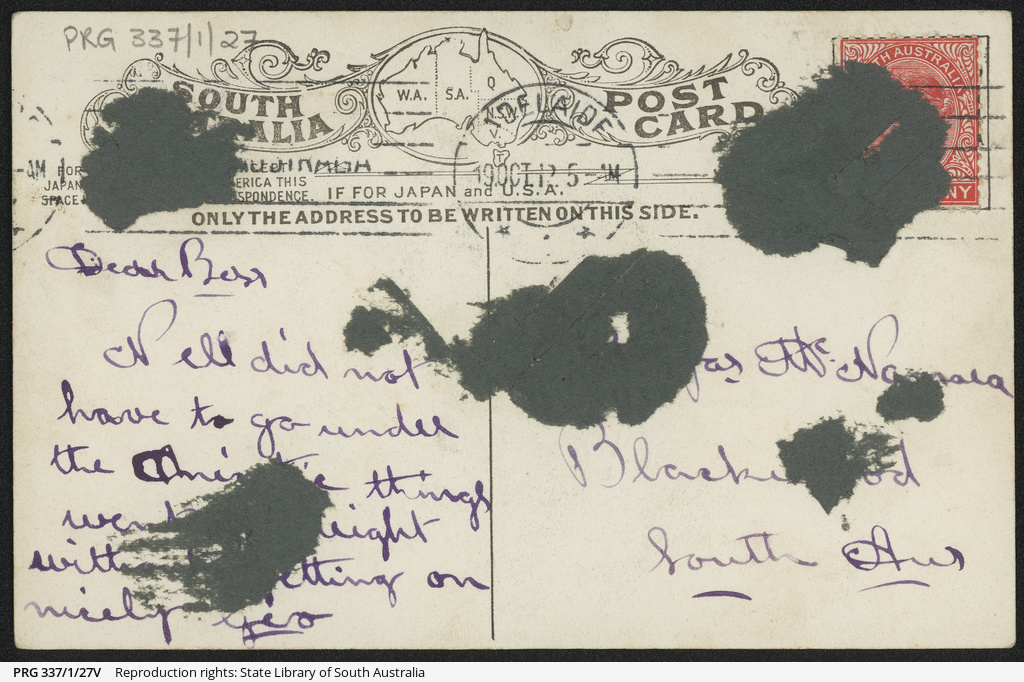 PRG 337/1/27
SOUTH
ALIA
W.A. S.A. Q N.S.W. V T
POST
CARD
SOUTH AUSTRALIA
NY
ADELAIDE
19 OCT 12 5 - M
FOR
JAPAN
SPACE
ERICA THIS
SPONDENCE. IF FOR JAPAN and U.S.A.
ONLY THE ADDRESS TO BE WRITTEN ON THIS SIDE.
Dear Boss
Nell did not
have to go under
the things
went right
with etting on
nicely Geo
Jas McNamara
Blackwood
South Aus
PRG 337/1/27V Reproduction rights: State Library of South Australia